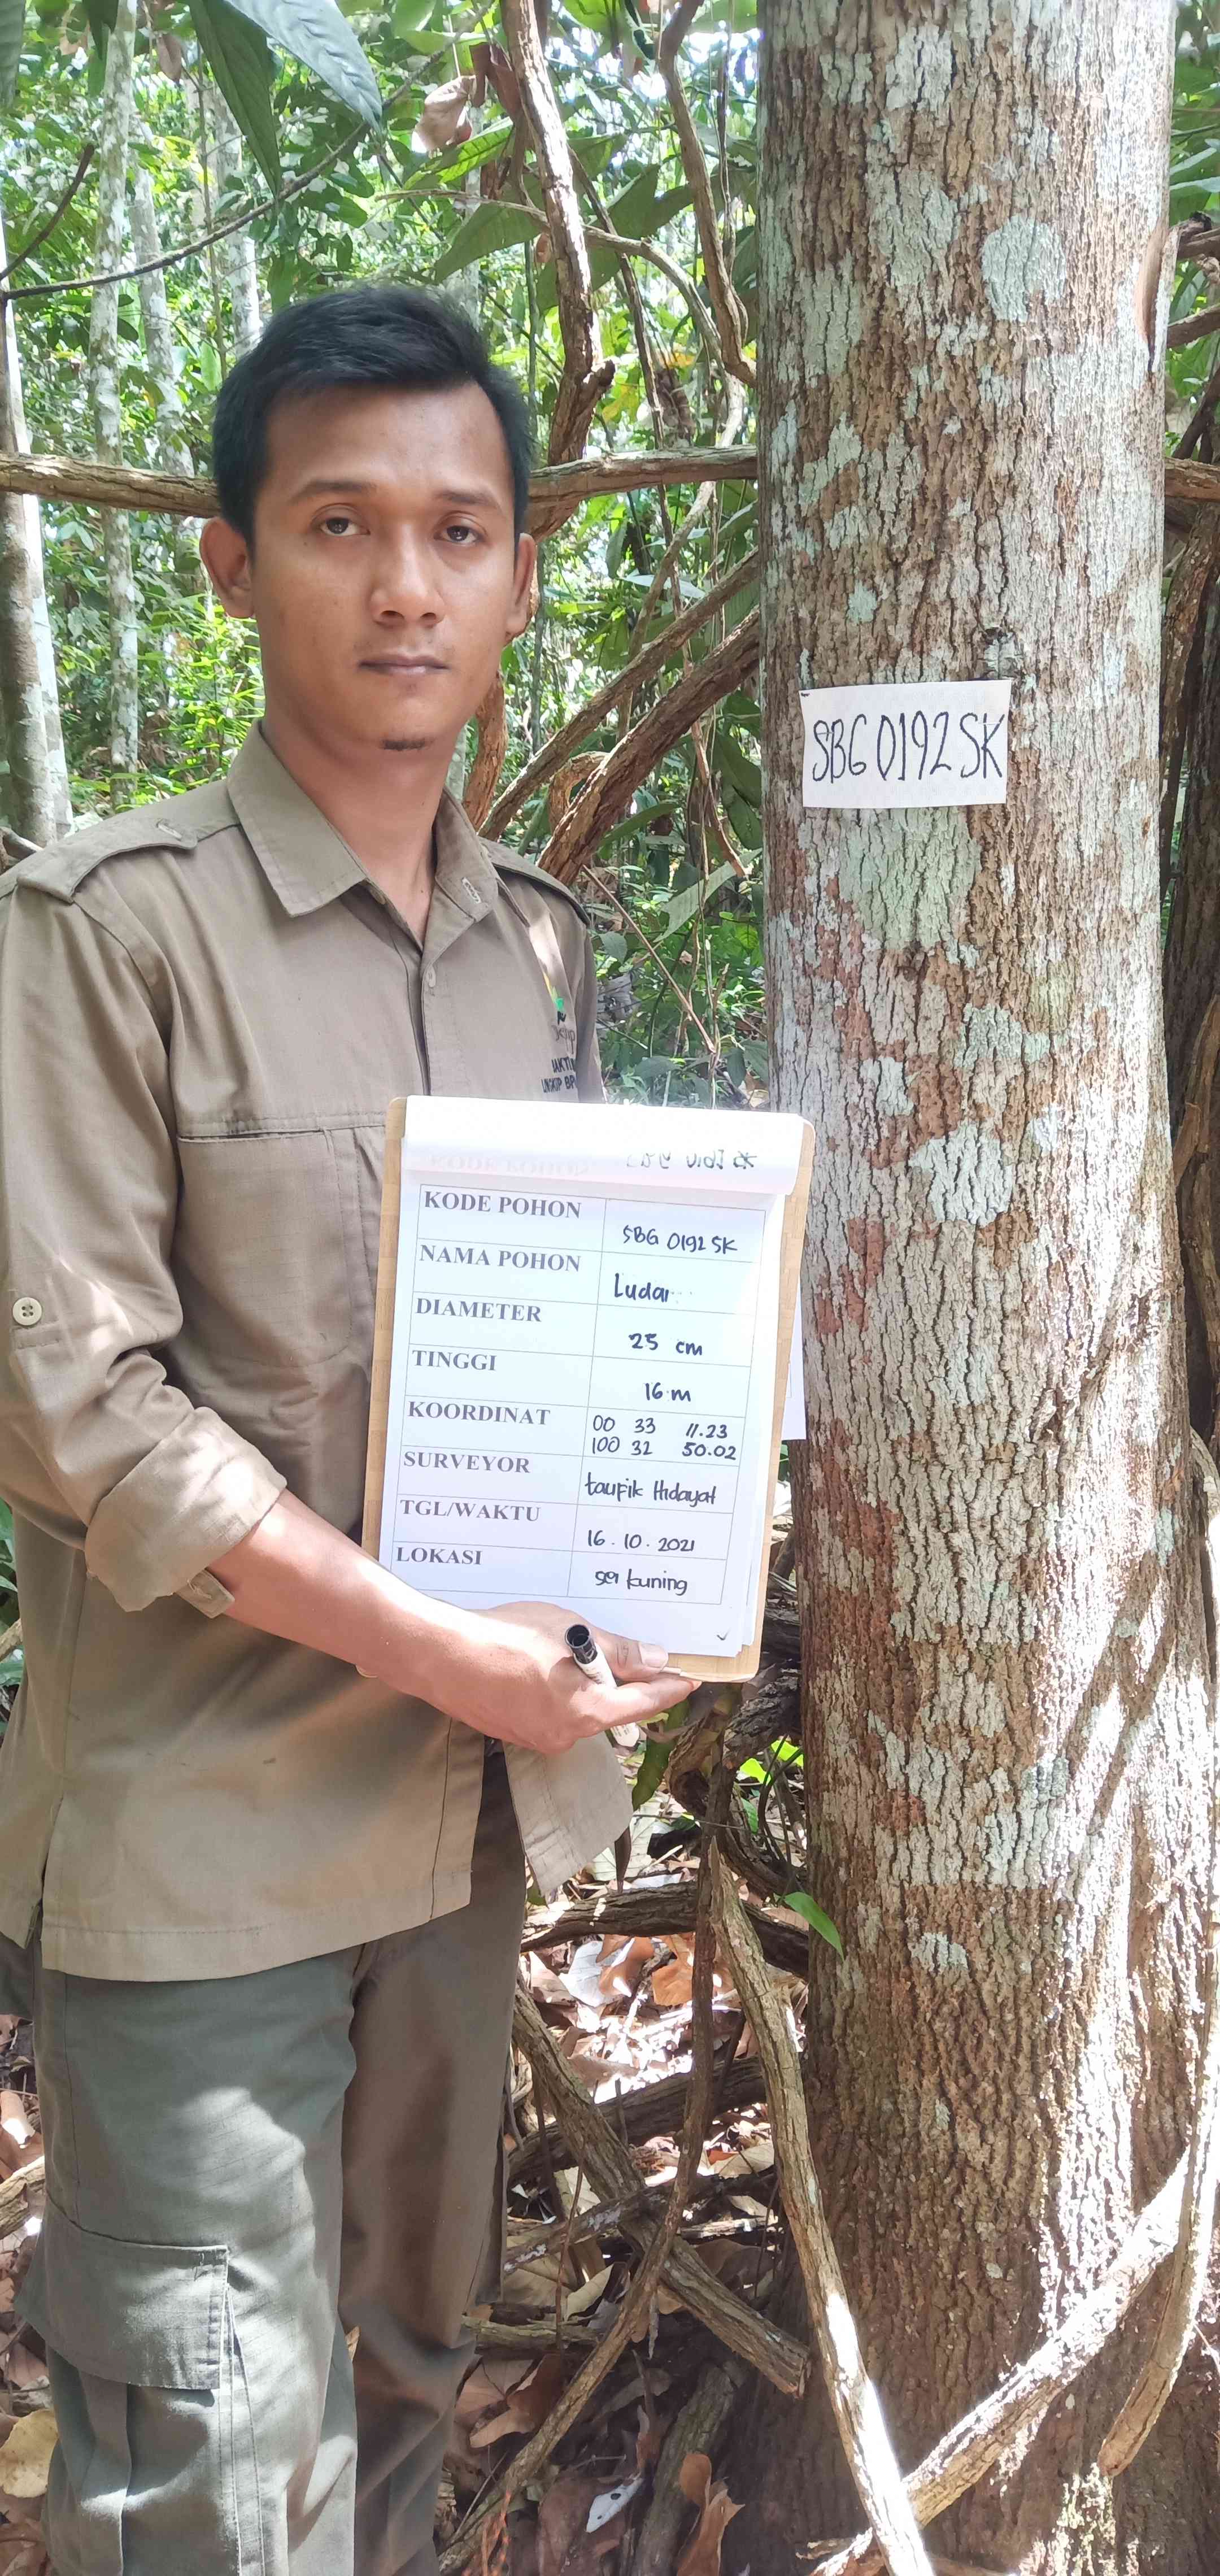 SBG 0192 SK
KODE POHON SBG 0192 SK
NAMA POHON Ludai
DIAMETER 25 cm
TINGGI 16 m
KOORDINAT 00 33 11.23
100 32 50.02
SURVEYOR taufik Hidayat
TGL/WAKTU 16.10.2021
LOKASI sei kuning